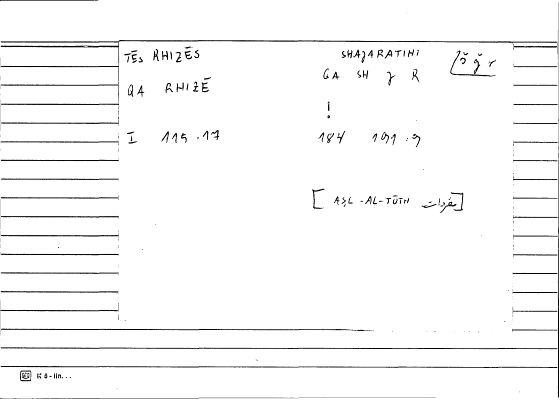 TĒS RHIZĒS SHAJARATIHI šǧr
QA RHIZĒ GA SH J R
!
I 115.17 184 191.9
[ AṢL-AL-TŪTH مفردات ]
K 8-lin...